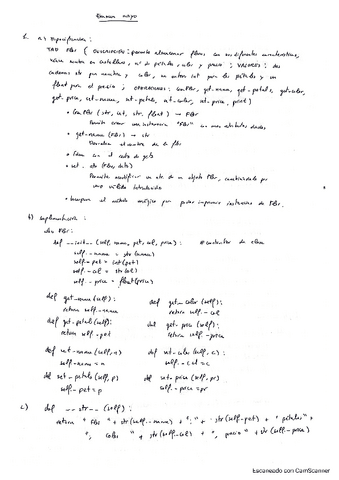 Examen mayo
1. a) Especificación:
TAD Flor ( DESCRIPCIÓN: permite almacenar flores con sus diferentes características,
nombre en castellano, nº de pétalos, color y precio; VALORES: dos
cadenas str para nombre y color, un entero int para los pétalos y un
float para el precio; OPERACIONES: Flor, get-name, get-petals, get-color,
get-price, set-name, set-petals, set-color, set-price, print)
(str, int, str, float) → Flor
Permite crear una instancia "Flor" con unos atributos dados.
• get-name (Flor) → str
Devuelve el nombre de la flor
• Idem con el resto de gets
• set- (Flor, dato)
Permite modificar un de un objeto Flor, cambiándolo por
uno válido introducido
• el método mágico para poder imprimir instancias de Flor.
b) Implementación:
class Flor:
def __init__ (self, name, pet, col, price): # constructor de clase
self.-name = str(name)
self.-pet = int(pet)
self.-col = str(col)
self.-price = float(price)
def get-name (self): def get-color (self):
return self.-name return self.-col
def get-petals (self): def get-price (self):
return self.-pet return self.-price
def set-name (self, n) def set-color (self, c):
self.-name = n self.-col = c
def set-petals (self, p) def set-price (self, pr)
self.-pet = p self.-price = pr
c) def __str__ (self):
return "Flor" + str(self.-name) + ":" + str(self.-pet) + "petalos" +
", color" + str(self.-col) + ", precio" + str(self.-price)
Escaneado con CamScanner